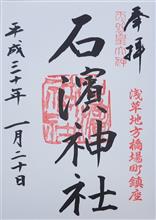 奉拝
浅草地方橋場町鎮座
石濱神社
平成三十年 一月二十日